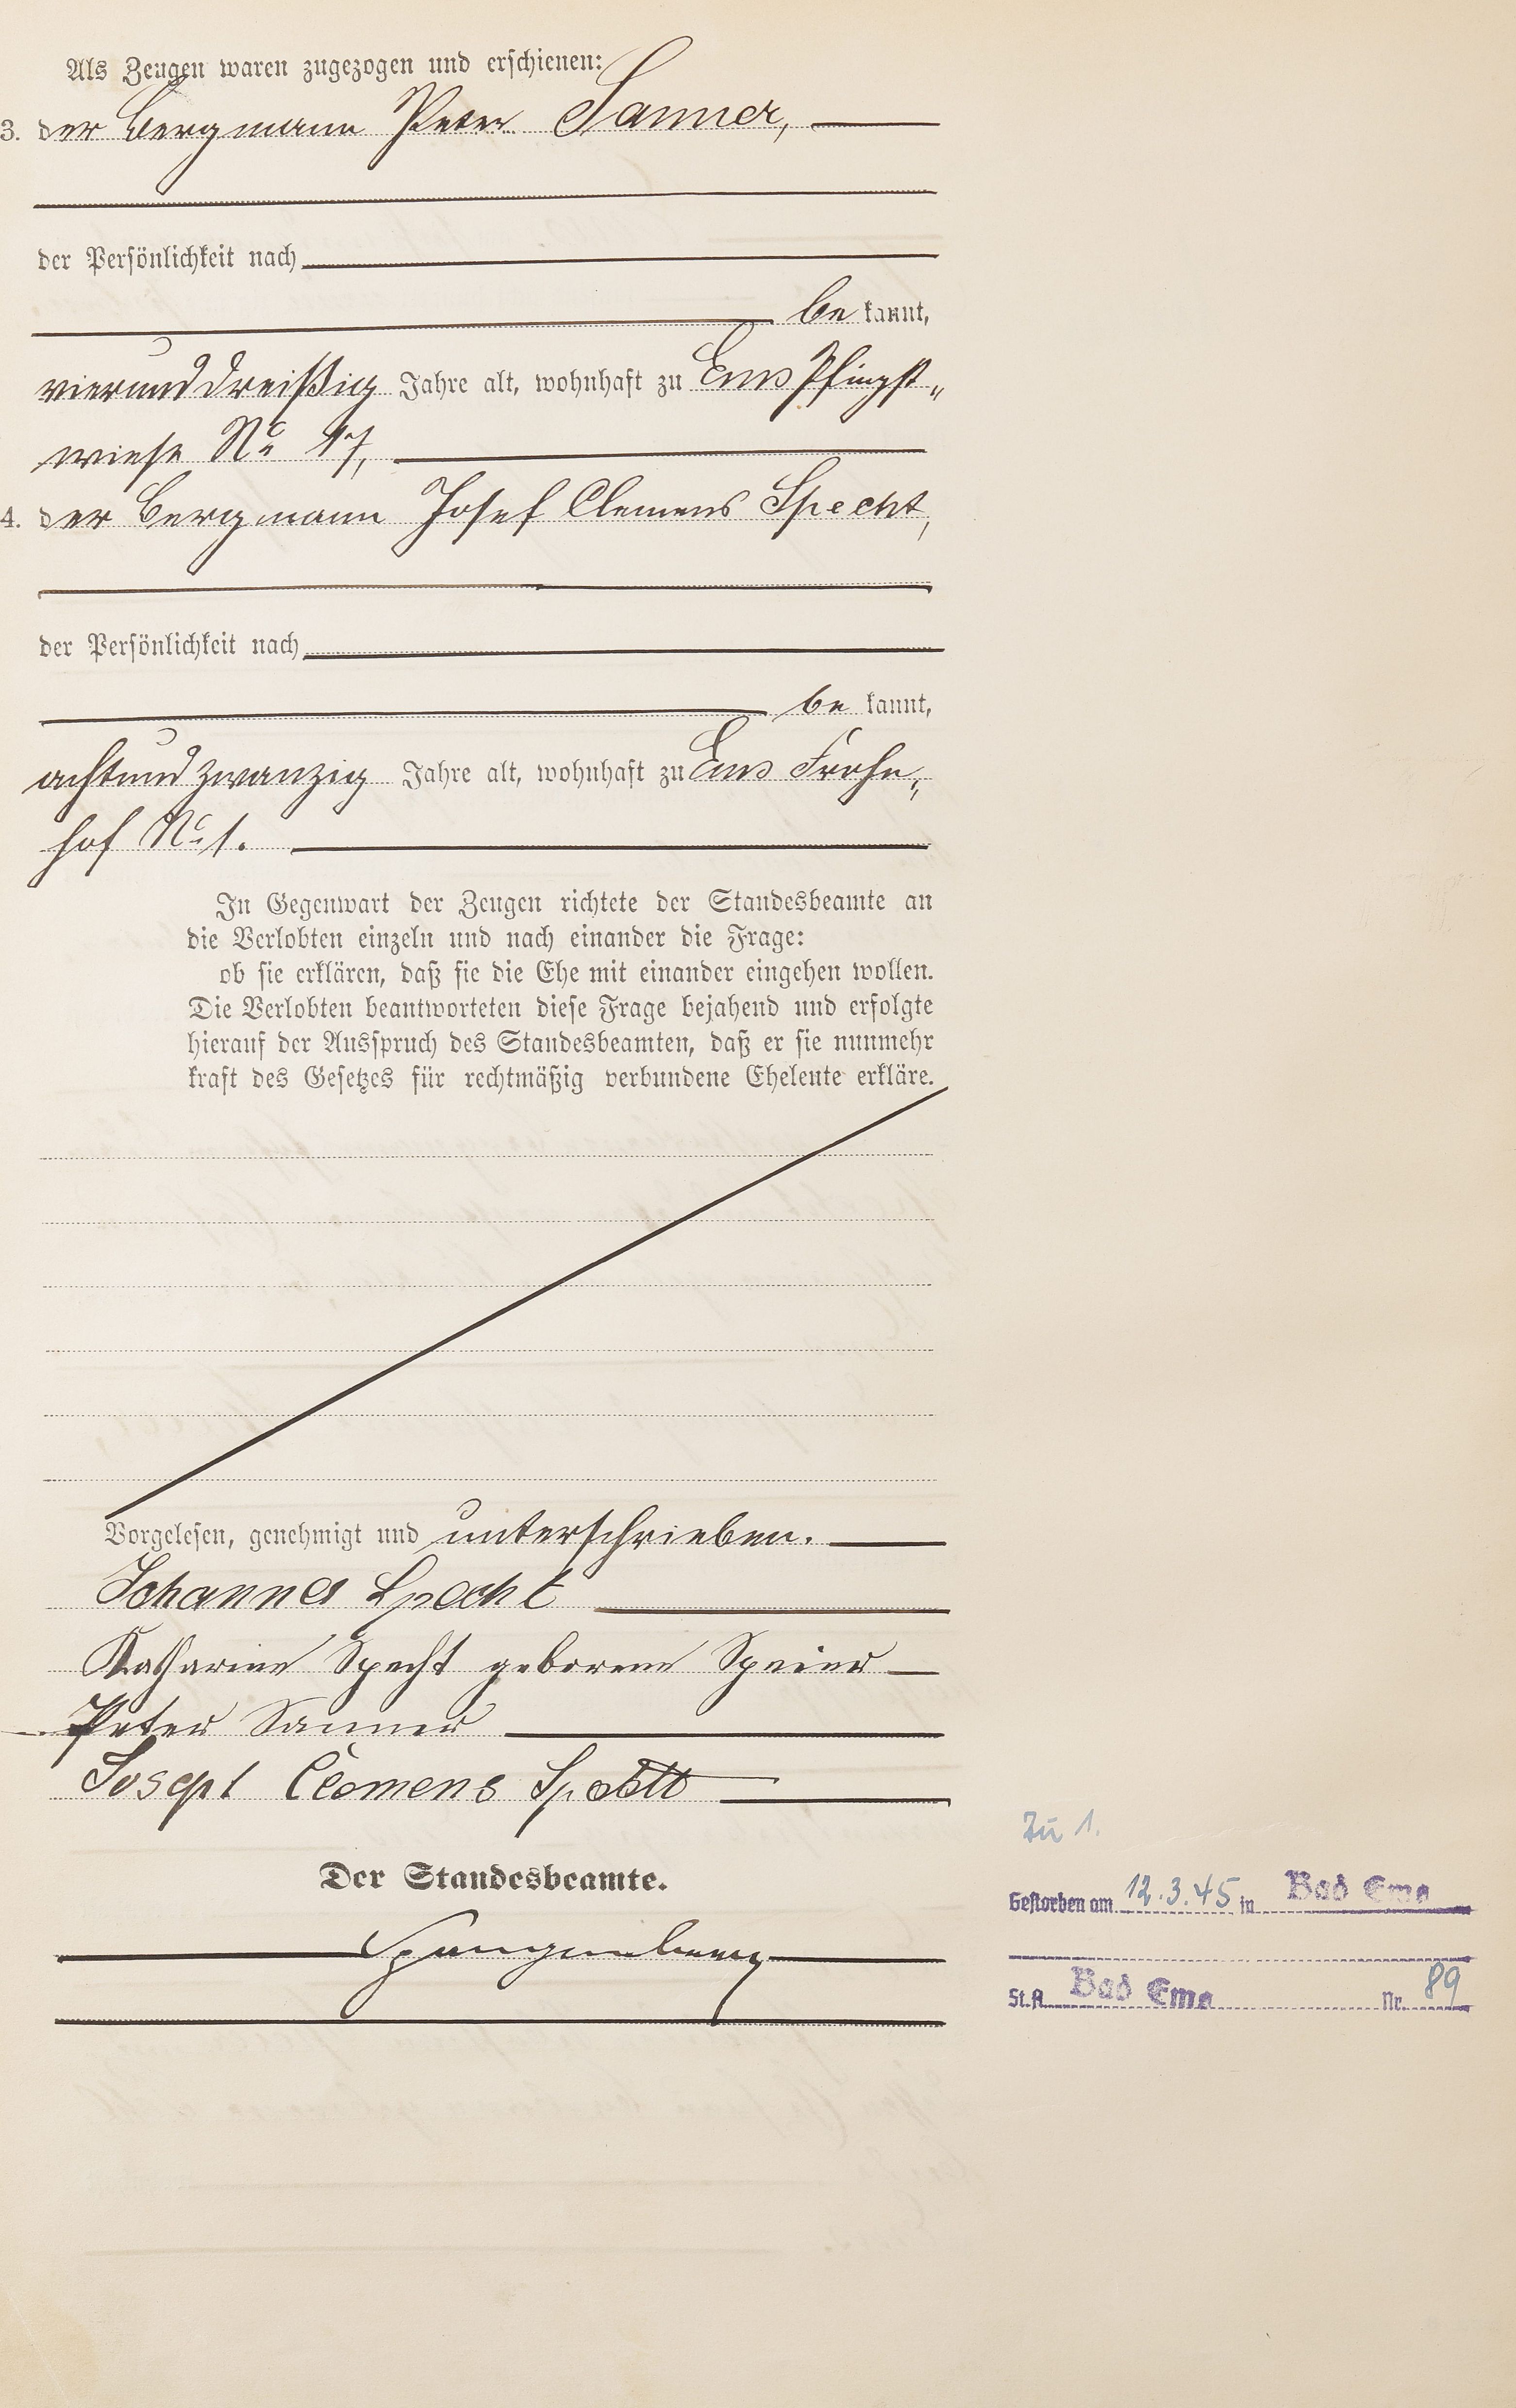 Als Zeugen waren zugezogen und erschienen:
3. der Bergmann Peter Sanner,
der Persönlichkeit nach
be kannt,
vierunddreißig Jahre alt, wohnhaft zu Ems Pfingst„
wiese No 17,
4. der Bergmann Josef Clemens Specht,
der Persönlichkeit nach
be kannt,
achtundzwanzig Jahre alt, wohnhaft zu Ems Frohn„
hof No 1.
In Gegenwart der Zeugen richtete der Standesbeamte an
die Verlobten einzeln und nach einander die Frage:
ob sie erklären, daß sie die Ehe mit einander eingehen wollen.
Die Verlobten beantworteten diese Frage bejahend und erfolgte
hierauf der Ausspruch des Standesbeamten, daß er sie nunmehr
kraft des Gesetzes für rechtmäßig verbundene Eheleute erkläre.
Vorgelesen, genehmigt und unterschrieben.
Johannes Specht
Katharina Specht geborene Speier
Peter Sanner
Josept Clemens Specht
Der Standesbeamte.
Spangenberg
Zu 1.
Gestorben am 12.3.45 in Bad Ems
St.A. Bad Ems Nr. 89